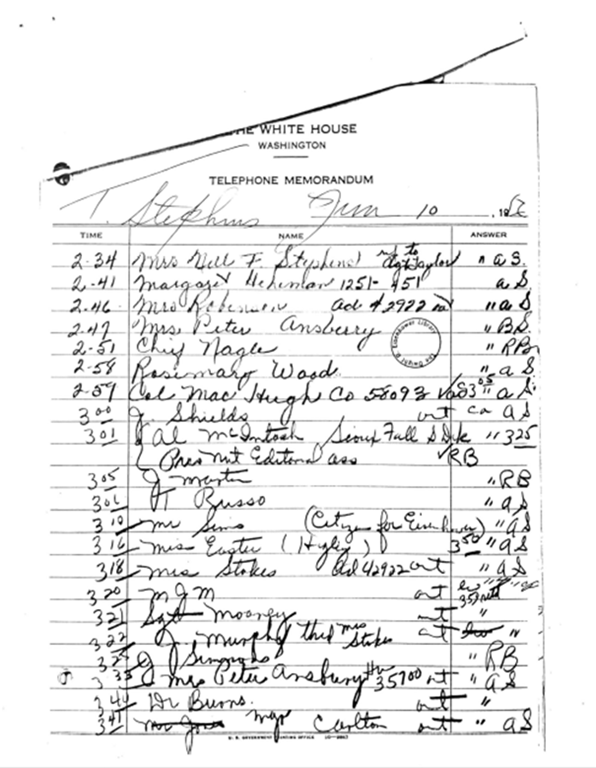 THE WHITE HOUSE
WASHINGTON
TELEPHONE MEMORANDUM
T. Stephens 10 , 19
TIME NAME ANSWER
2-34 Mrs Nell F. Stephens to Taylor " a S.
2-41 Margaret 1251- 451 a S
2-46 Mrs Robinson Ad 42922 " a S
2-47 Mrs. Peter Ansberry " BS
2-51 Chief Nagle " RB
2-58 Rosemary Wood " a S
2-59 Col Mac Hugh Co 58093 " a S
3 00 J. Shields out a S
3 01 Al McIntosh Sioux Fall S.D. " 3 25
Pres Nat Editorial ass RB
3 05 J Martin " RB
3 06 T Russo " a S
3 10 Mr Sims (Citizen for Eisenhower) " a S
3 16 Miss Easter (Higley) 3 50 " a S
3 18 Mrs Stokes Ad 42922 out " a S
3 20 M J M out
3 21 Sgt Mooney out "
3 22 J. Murphy Mrs Stokes out "
3 25 J Simmons " RB
3 35 Mrs Peter Ansbury 35700 out " a S
3 40 Dr Burns. out "
3 41 Mr Jones Mgr Carlton out " a S
U. S. GOVERNMENT PRINTING OFFICE